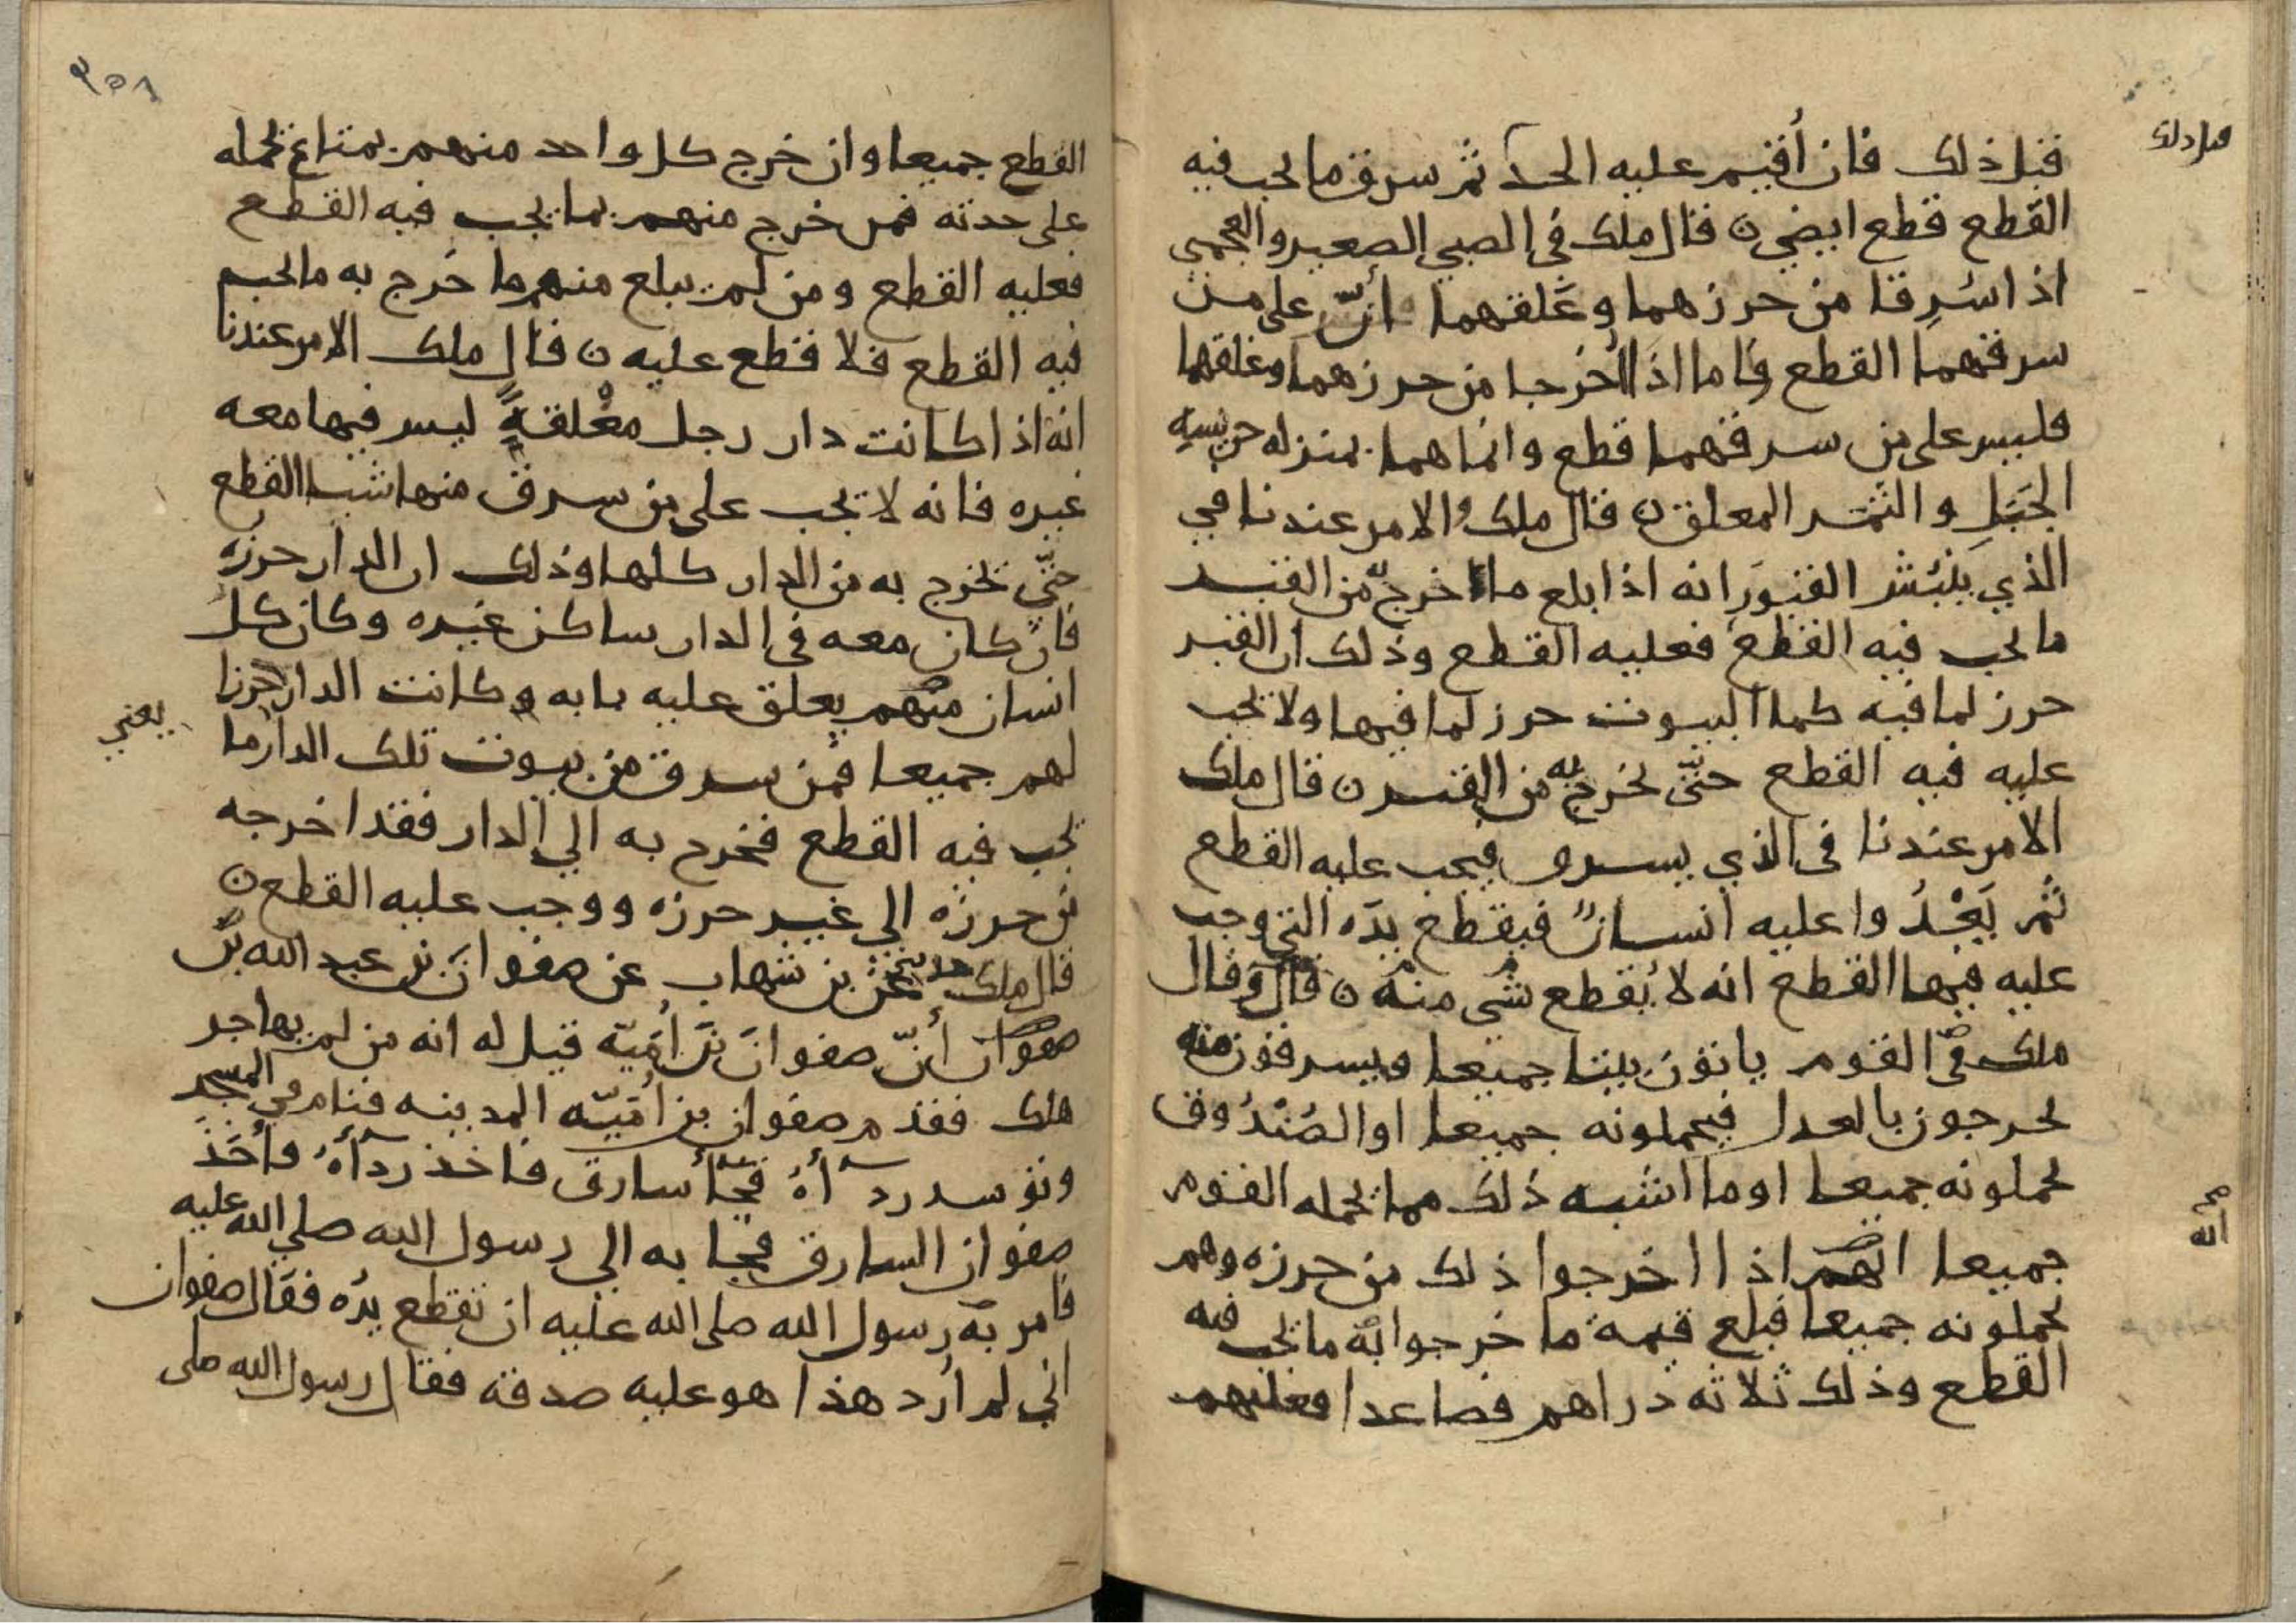 قبل ذلك
قبل ذلك فان أقيم عليه الحد ثم سرق ما يجب فيه
القطع قطع ايضا ن قال ملك في الصبي الصغير والعجمي
اذا سُرِقا من حرزهما وغلقهما أنّ على من
سرقهما القطع فاما اذا أُخرجا من حرزهما وغلقهما
فليس على من سرقهما قطع وانما هما بمنزله حريسه
الجَبَلِ والثمَر المعلق ن قال ملك والامر عندنا في
الذي ينبُش القبورَ انه اذا بلغ ما اخرج من القبر
ما يجب فيه القطع فعليه القطع وذلك ان القبر
حرز لما فيه كما البيوت حرز لما فيها ولا يجب
عليه فيه القطع حتّى يخرج به من القبر ن قال ملك
الامر عندنا في الذي يسرق فيجب عليه القطع
ثم يَعْدُوا عليه انسانٌ فيقطع يدَه التي وجب
عليه فيها القطع انه لا يُقطع شي منه ن قال وقال
ملك في القوم ياتون بيتا جميعا ويسرفون منه
يخرجون بالعدل فيحملونه جميعا او الصُنْدُوق
يحملونه جميعا او ما اشبه ذلك مما يحمله القوم
جميعا انهم اذا اخرجوا ذلك من حرزه وهم
انه
يحملونه جميعا فبلغ قيمة ما خرجوا به ما يجب فيه
القطع وذلك ثلاثه دراهم فصاعدا فعليهم
٣٥٨
القطع جميعا وان خرج كل واحد منهم بمتاع يحمله
على حدته فمن خرج منهم بما يجب فيه القطع
فعليه القطع ومن لم يبلغ منهم ما خرج به ما يجب
فيه القطع فلا قطع عليه ن قال ملك الامر عندنا
انه اذا كانت دار رجل مغْلقةً ليس فيها معه
غيره فانه لا يجب على من سرق منها شيا القطع
حتّى يخرج به من الدار كلها وذلك ان الدار حرزه
فان كان معه في الدار ساكن غيره وكان كل
انسان منهم يغلق عليه بابه وكانت الدار حرزا
لهم جميعا فمن سرق من بيوت تلك الدار ما
يعني
يجب فيه القطع فخرج به الي الدار فقد اخرجه
من حرزه الي غير حرزه ووجب عليه القطع ن
قال ملك عن بن شهاب عن صفوانَ بن عبد الله بن
صفوان أنّ صفوانَ بنَ أُمَيّه قيل له انه من لم يهاجر
هلك فقدم صفوان بن أميّه المدينه فنام في المسجد
وتوسد ردآءَهُ فجآ سارق فاخذ ردآءَهُ فأخَذَ
صفوان السارق فجا به الي رسول الله صلي الله عليه
فامر به رسول الله صلى الله عليه ان تقطع يدُه فقال صفوان
اني لم أُرد هذا هو عليه صدقه فقال رسول الله صلى